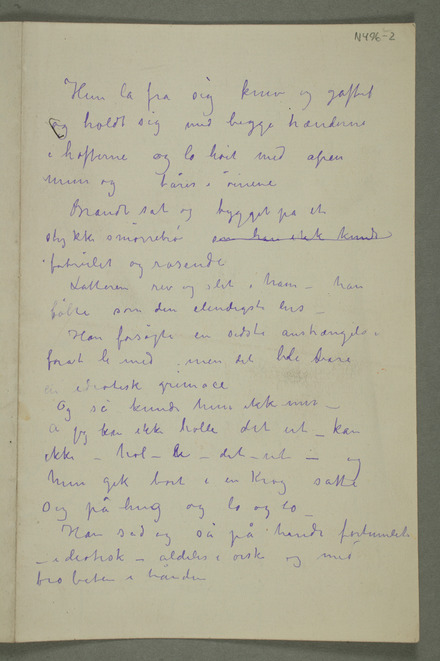 N496-2
Hun la fra sig kniv og gaffel
og holdt sig med begge hænderne
i hofterne og lo høit med åpen
mun og tårer i øinene
Brandt sat og tygget på et
stykke smørrebrø som han ikke kunde
fortvilet og rasende
Latteren rev og slet i ham – han
følte som den elendigste
Han forsøgte en sidste anstrængelse
forat le med men det ble bare
en idiotisk grimace
Og så kunde hun ikke mer –
å jeg kan ikke holde det ut – kan
ikke – hol – le – det – ut – og
hun gik bort i en krog satte
sig på hug og lo og lo –
Han sad og så på hende fortumlet
– idiotisk – aldeles i ørsk og med
brøbeten i hånden